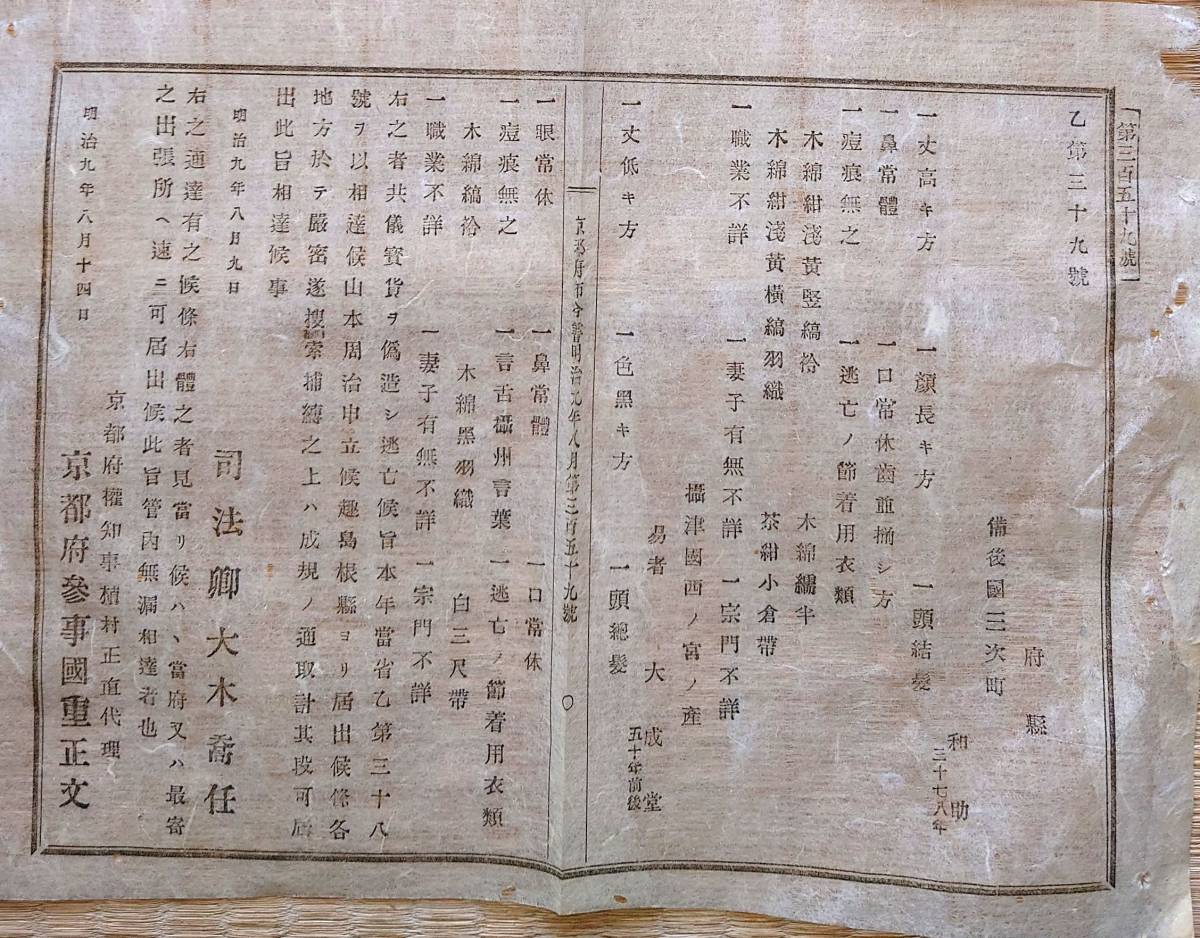 第三百五十九號
乙第三十九號
府縣
備後國三次町
和助
三十七八年
一丈高キ方 一顏長キ方 一頭結髮
一鼻常體 一口常休齒重桶シ方
一痘痕無之 一逃亡ノ節着用衣類
木綿紺淺黃竪縞袷 木綿繻半
木綿紺淺黃橫縞羽織 茶紺小倉帶
一職業不詳 一妻子有無不詳 一宗門不詳
攝津國西ノ宮ノ產
易者 大成堂
五十年前後
一丈低キ方 一色黑キ方 一頭總髮
京都府布令書明治九年八月第三百五十九號 〇
一眼常休 一鼻常體 一口常休
一痘痕無之 一言舌攝州言葉 一逃亡ノ節着用衣類
木綿縞袷 木綿黑羽織 白三尺帶
一職業不詳 一妻子有無不詳 一宗門不詳
右之者共儀寳貨ヲ僞造シ逃亡候旨本年當省乙第三十八
號ヲ以相達候山本周治申立候趣島根縣ヨリ屆出候條各
地方於テ嚴密遂搜索捕縛之上ハ成規ノ通取計其段可屆
出此旨相達候事
明治九年八月九日
司法卿大木喬任
右之通達有之候條右體之者見當リ候ハヽ當府又ハ最寄
之出張所ヘ速ニ可屆出候此旨管內無漏相達者也
京都府權知事槇村正直代理
明治九年八月十四日 京都府參事國重正文